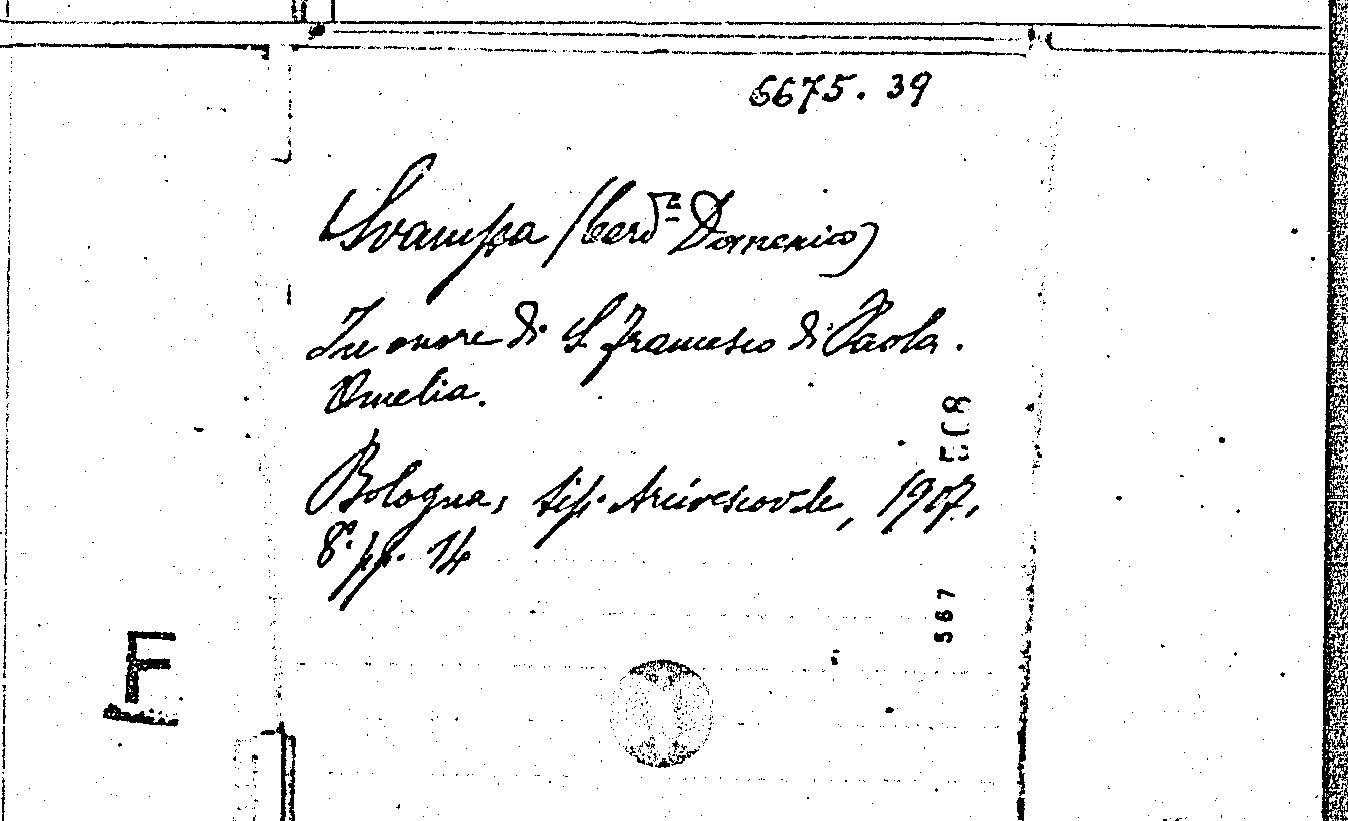 6675.39
Svampa (Card.le Domenico)
In onore di S. Francesco di Paola.
Omelia.
Bologna, tip. Arcivescovile, 1907,
8° pp. 14
508
567
F